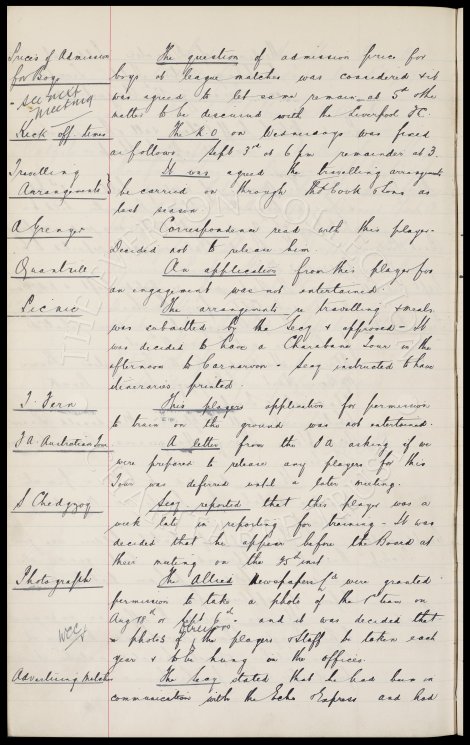 Prices of Admission The question of admission price for
for Boys boys at league matches was considered & it
- see next was agreed to let same remain at 5d the
meeting matter to be discussed with the Liverpool FC.
Kick off times The K O on Wednesdays was fixed
as follows Sept 3rd at 6 pm remainder at 3.
Travelling It was agreed the travelling arrangements
Arrangements be carried on through Thos Cook & Sons as
last season
A Grenyer Correspondence read with this player.
Decided not to release him.
Quantrill An application from this player for
an engagement was not entertained.
Picnic The arrangements re travelling & meals
was submitted by the Secy & approved - It
was decided to have a Charabanc Tour in the
afternoon to Carnarvon - Secy instructed to have
itineraries printed.
T. Fern This players application for permission
to train on the ground was not entertained.
F A Australian Tour A letter from the F A asking if we
were prepared to release any players for this
Tour was deferred until a later meeting.
S Chedgzoy Secy reported that this player was a
week late in reporting for training - It was
decided that he appear before the Board at
their meeting on the 25th inst.
Photograph The Allied Newspapers were granted
permission to take a photo of the 1st team on
Aug 18th or Sept 6th. and it was decided that
directors
WCC photos of the players & staff be taken each
year & to be hung in the offices.
Advertising Matches The Secy stated that he had been in
communication with the Echo & Express and had